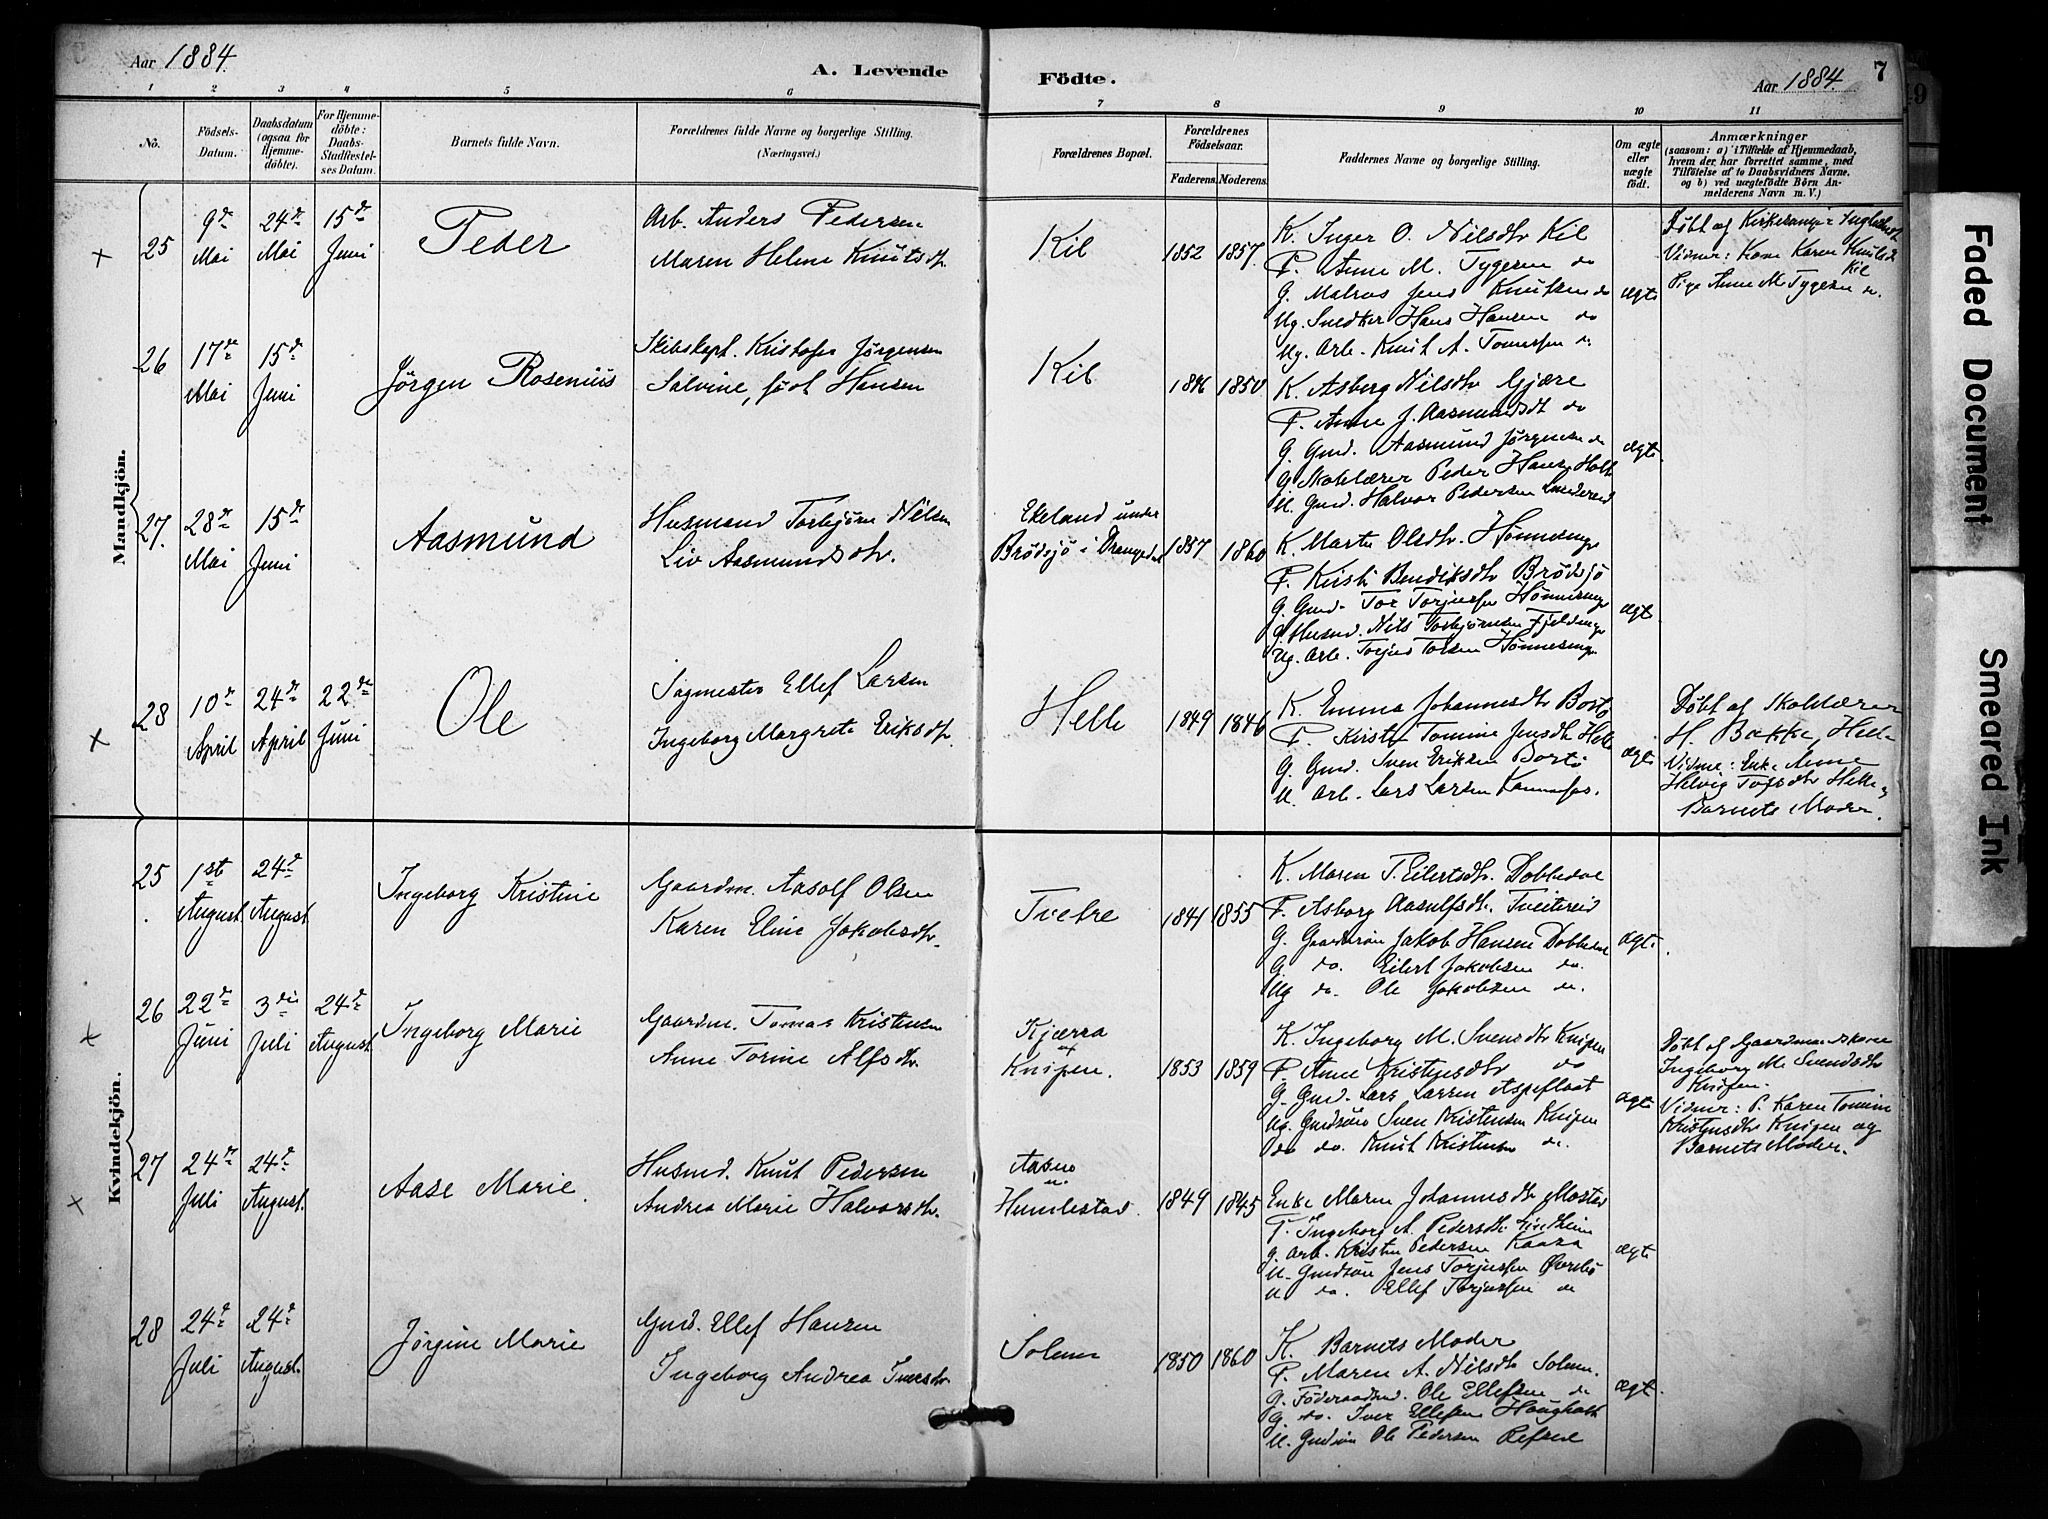 Aar 1884.
A. Levende Födte.
Aar 1884.
7
1 2 3 4 5 6 7 8 9 10 11
No.
Födsels-Datum.
Daabsdatum (ogsaa for Hjemme-döbte).
For Hjemme-döbte: Daabs-Stadfæstel-ses Datum.
Barnets fulde Navn.
Forældrenes fulde Navne og borgerlige Stilling. (Næringsvei.)
Forældrenes Bopæl.
Forældrenes Födselsaar.
Faderens. Moderens.
Faddernes Navne og borgerlige Stilling.
Om ægte eller uægte födt.
Anmærkninger
(saasom: a) i Tilfælde af Hjemmedaab,
hvem der har forrettet samme, med
Tilföielse af to Daabsvidners Navne,
og b) ved uægtefödte Börn An-
melderens Navn m. V.)
Mandkjön.
25
9de Mai
24de Mai
15de Juni
Peder
Arb. Anders Pedersen
Maren Helene Knutsdr.
Kil
1852 1857
K. Inger O. Nilsdtr Kil
P. Anne M. Tygesen do
G. Matros Jens Knutsen do
Ug. Snedker Hans Hansen do
Ug. Arb. Knut A. Tomessen do
ægte
Døbt af Kirkesanger
Vidner: Kone Karen Knutsd
Kil
Pige Anne M Tygesen
26
17de Mai
15de Juni
Jörgen Rosenius
Skibskapt. Kristofer Jørgensen
Salvine, født Hansen
Kil
1846 1850
K. Asberg Nilsdtr Gjære
P. Anne J. Aasmundsdt do
G. Gmd. Aasmund Jørgensen do
G Skolelærer Peder Hansen Holt
U. Gmd. Halvor Pedersen
ægte
27.
28de Mai
15de Juni
Aasmund
Husmand Torbjørn Nilsen
Liv Aasmundsdtr.
Ekeland under
Brødsjø i Drangedal
1857 1860
K. Marte Olsdtr. Hønnesenge
P. Kristi Bendiksdtr Brødsjø
G. Gmd. Tor Torjussen Hønnesenge
G. Husmd. Nils Torbjørnsen
Ug. Arb. Torjus Torsen Hønnesenge
ægte
28
10de April
24de April
22de Juni
Ole
Sagmester Ellef Larsen
Ingeborg Margrete Eriksdr.
Helle
1849 1846
K. Emma Johannesdtr Bostø
P. Kirsten Tomine Jensdtr Helle
G. Gmd. Sven Eriksen Bostø
U. Arb. Lars Larsen
ægte
Døbt af Skolelærer
H. Bakke, Helle
Vidner: Enke Anne
Helvig Torsdtr Helle og
Barnets Moder.
Kvindekjön.
25
1st August
24de August
Ingeborg Kristine
Gaardm. Aasolf Olsen
Karen Eline Jakobsdtr.
Tvetre
1841 1855
K. Maren T. Eilertsdtr. Dobbedal
P. Asborg Aasulfsdtr. Tveitereid
G. Gaardssøn Jakob Hansen Dobbedal
G. do. Eilert Jakobsen do.
Ug do. Ole Jakobsen do.
ægte
26
22de Juni
3die Juli
24de August
Ingeborg Marie
Gaardm. Tomas Kristensen
Anne Torine Alfsdtr.
Kjærra
af
Knipen.
1853 1859
K. Ingeborg M. Svensdtr Knipen
P. Anne Kristensdtr do
G. Gmd. Lars Larsen Aspeflaat
Ug. Gmdsøn Sven Kristensen Knipen
do do. Knut Kristensen do.
ægte
Døbt af Gaardmandskone
Ingeborg M. Svendsdtr
Knipen.
Vidner: P. Karen Tomine
Kristensdtr Knipen og
Barnets Moder.
27
24de Juli
24de August.
Aase Marie.
Husmd. Knut Pedersen
Andrea Marie Halvorsdtr.
Aasen
u.
Humlestad.
1849 1845
Enke Maren Johannesdtr Mostad
P. Ingeborg A. Pedersdtr. Lindheim
G. Arb. Kristen Pedersen Kaasa
U. Gmdsøn Jens Torjussen
U do. Ellef Torjussen do
ægte
28
24de Juli
24de August.
Jørgine Marie
Gmd. Ellef Hansen
Ingeborg Andrea Iversdtr.
Solem
1850 1860
K. Barnets Moder
P. Maren A. Nilsdtr Solem.
G. Føderaadsmd. Ole Ellefsen do
G. do. Iver Ellefsen Haugholt
U. Gmdsøn Ole Pedersen
ægte.
Faded Document
Smeared Ink